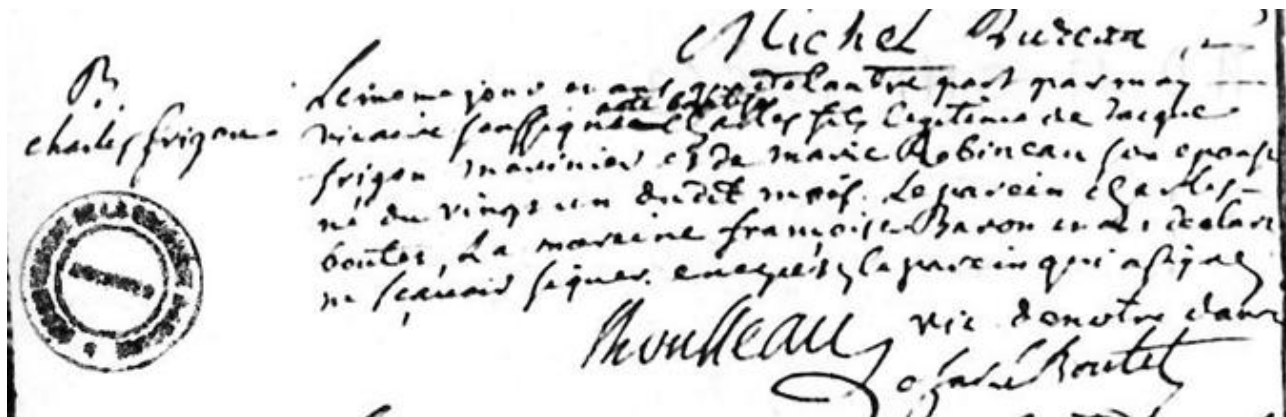 Michel Bureau
B.
charles frigon
Le meme jour et an que de lautre part par moy
vicaire soussigné a eté baptisé Charles fils legitime de Jacque
frigon marinier et de marie Robineau son epouse
né du vingt un dudit mois. Le parein charles
boutet, La mareine françoise Baron ont declaré
ne sçavoir signer. enquis le parein qui a signé
Rousseau vic de notre dame
charle Boutet